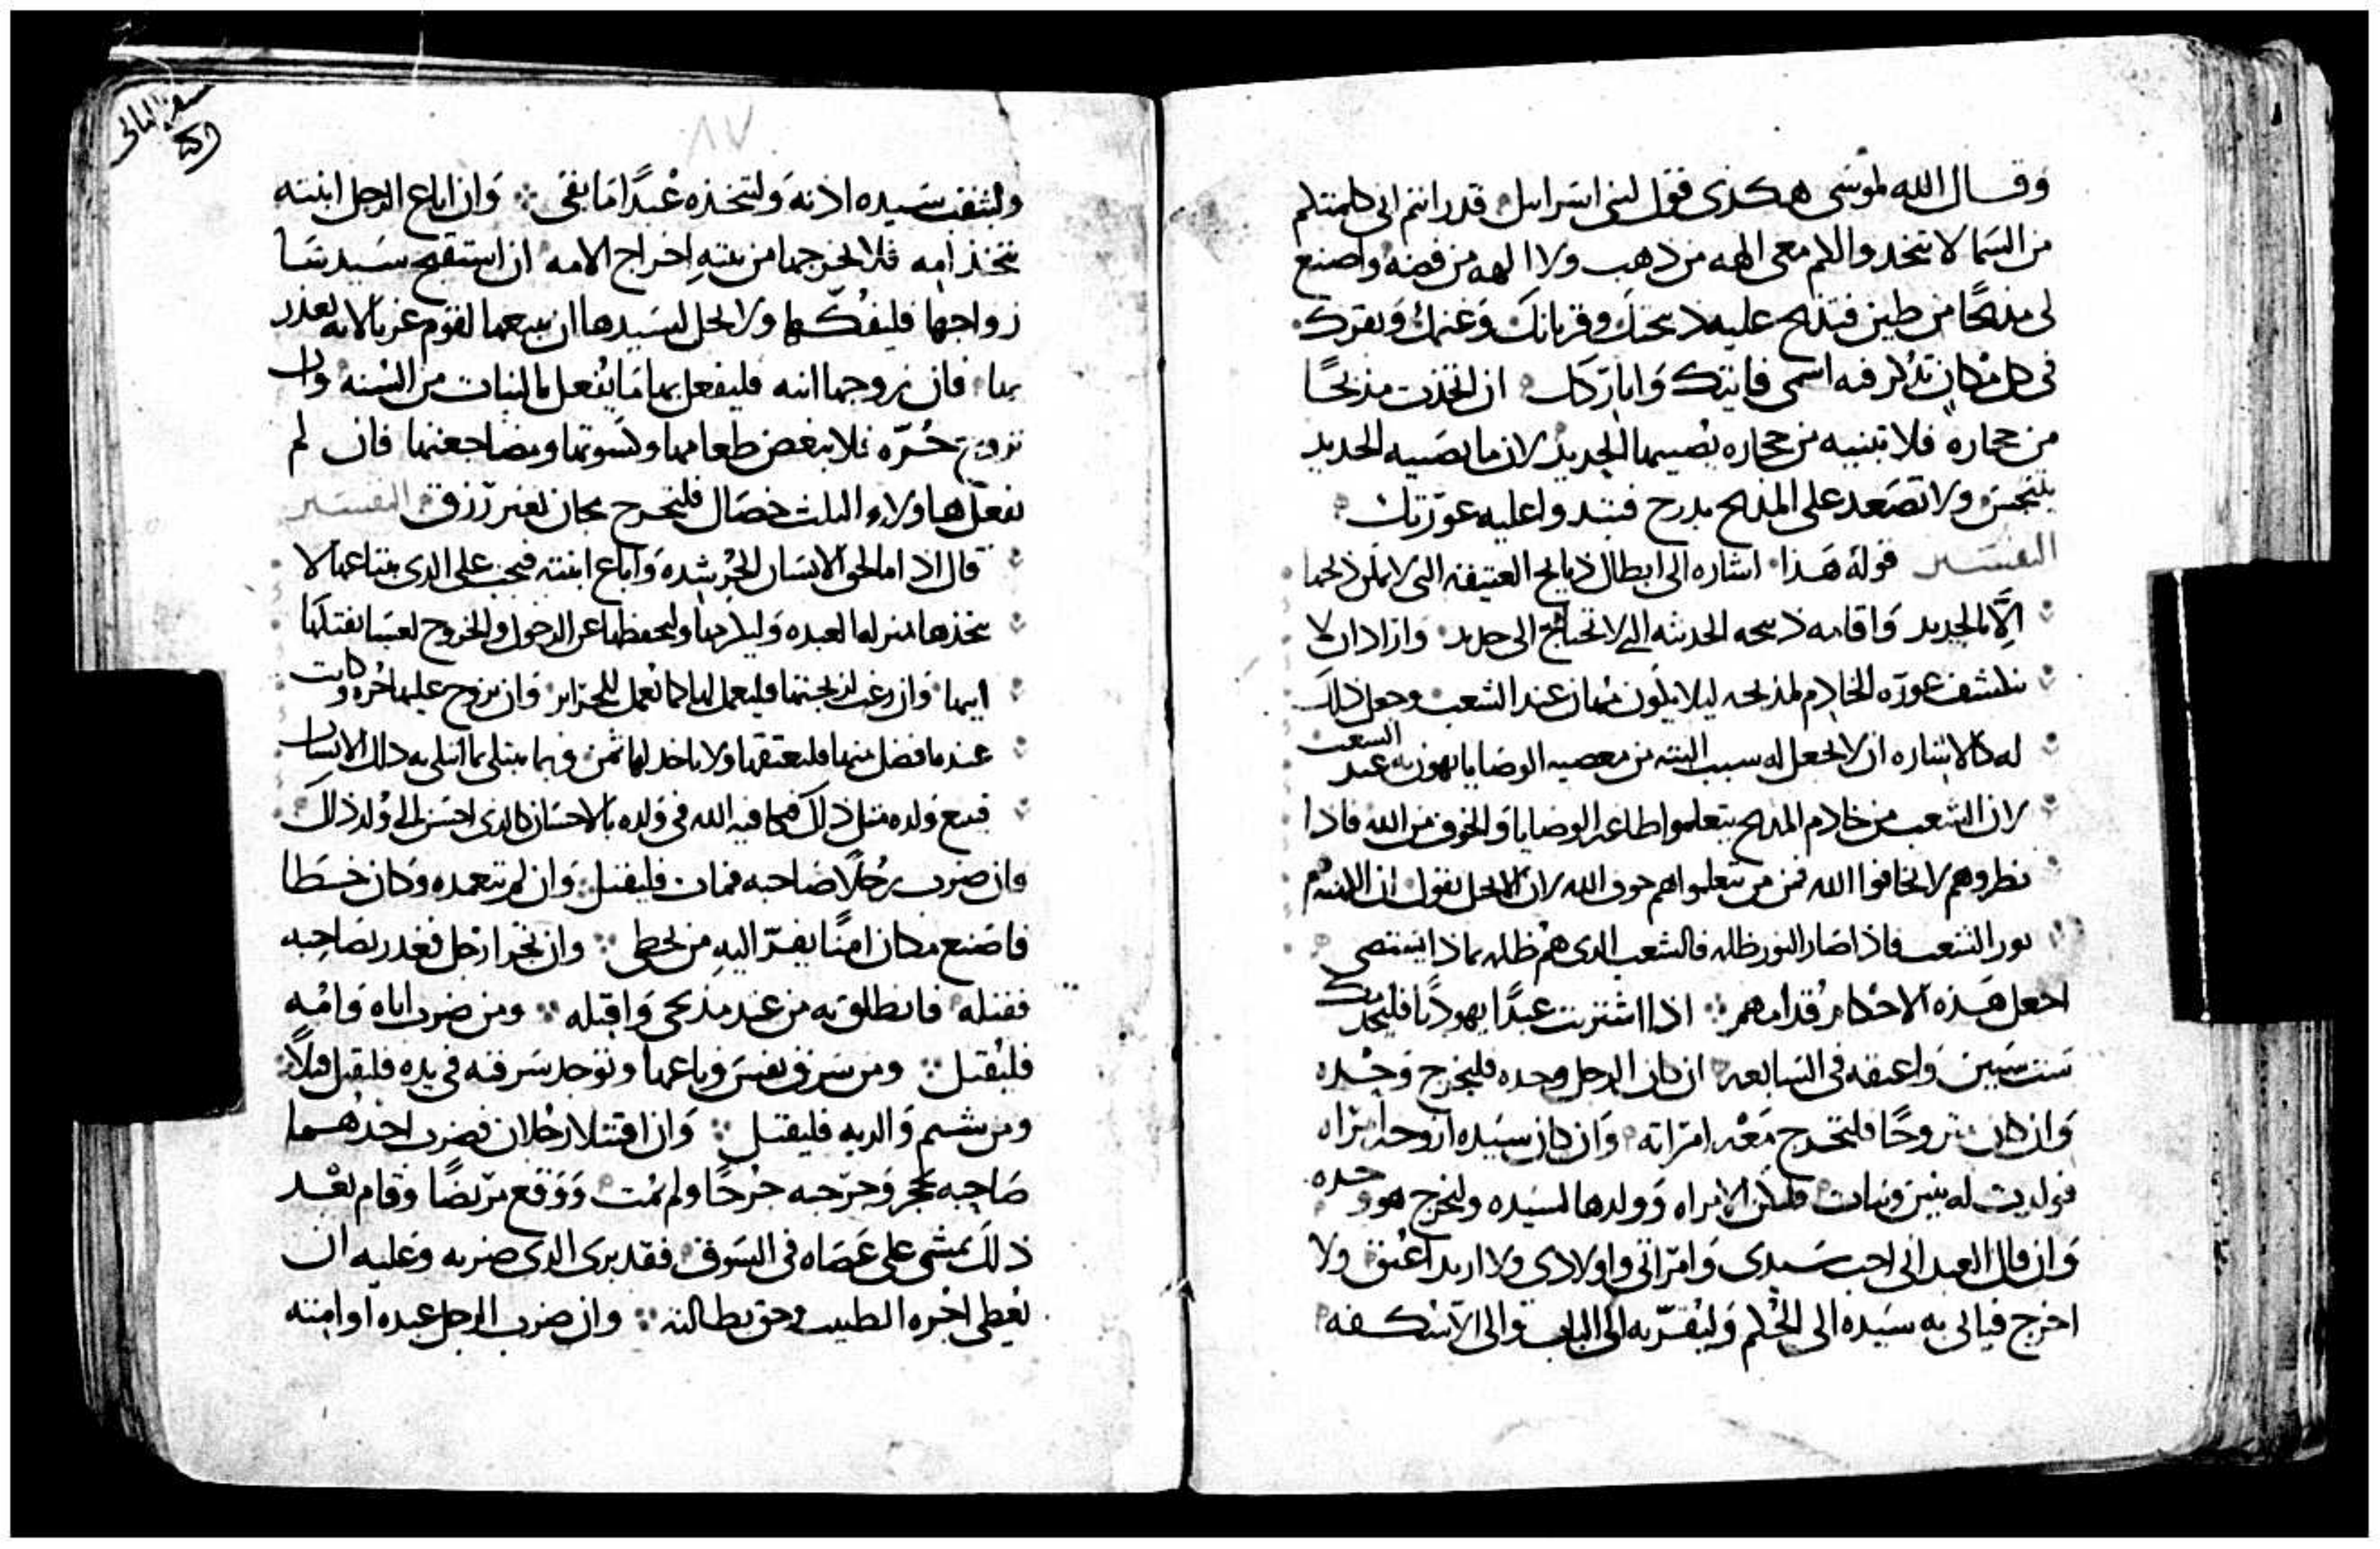 وقال الله لموسى هكذى فقل لبنى اسراييل قد رانتم انى كلمتكم
من السما لا تتخدوا لكم معى الهه من ذهب ولا الهه من فضه واصنع
لى مذبحًا من طين فتذبح عليه ذبيحتك وقربانك وغنمك وبقرك
فى كل مكان تذكر فيه اسمى فاتيتك واباركك ان اتخذت مذبحًا
من حجاره فلا تبنيه من حجاره يصيبها الحديد لان ما يصيبه الحديد
يتنجس ولا تصعد على المذبح بدرج فتبدوا عليه عورتك
التفسير قوله هذا اشاره الى ابطال ذبايح العتيقه التى لا يمكن ذبحها
الا بالحديد واقامه ذبيحه الحديثه التى لا تحتاج الى حديد واراد ان لا
تنكشف عورة الخادم لمذبحه ليلا يكون مهان عند الشعب وجعل ذلك
له كالاشاره ان لا يجعل له سبب البته من معصيه الوصايا يهون به عند الشعب
لان الشعب من خادم المذبح يتعلموا طاعه الوصايا والخوف من الله فاذا
نظروهم لا يخافوا الله فمن من يتعلموا هم خوف الله لان الانجيل يقول ان الايمه هم
نور الشعب فاذا صار النور ظلمه فالشعب الدى هم ظلمه بماذا يستضى
اجعل هذه الاحكام قدامهم اذا اشتريت عبدًا يهوديا فليخدمك
ست سنين واعتقه فى السابعه ان كان الرجل وحده فليخرج وحده
وان كان متزوجًا فلتخرج معه امراته وان كان سيده ازوجه امراه
فولدت له بنين وبنات فلتكن الامراه وولدها لسيده وليخرج هو وحده
وان قال العبد انى احب سيدى وامراتى واولادى ولا اريد اعتق ولا
اخرج فياتى به سيده الى الحكم وليقربه الى الباب والى الاسكفه
سفر الثانى
٨٧
وليثقب سيده اذنه وليتخذه عبدًا ما بقى وان اباع الرجل ابنته
تتخذ امه فلا يخرجها من بيته اخراج الامه ان استقبح سيدها
زواجها فليفكها ولا يحل لسيدها ان يبيعها لقوم غربا لانه يغدر
بها فان زوجها ابنه فليفعل بها ما يفعل بالبنات من السنه وان
تزوج حره فلا ينغص طعامها وكسوتها ومضاجعتها فان لم
يفعل هاولاء الثلث خصال فلتخرج مجان بغير رزق التفسير
قال اذا ما الحق الانسان الحر شده واباع ابنته فيجب على الدى يبتاعها لا
يتخذها بمنزله العبده وليكرمها وليحفظها عن الدخول والخروج لعسا يفتكها
ابيها وان رغب لزيجتها فليعمل لها كما يعمل للحراير وان تزوج عليها حره وكانت
عنده افضل منها فليعتقها ولا ياخد لها ثمن وربما يبتلى بما ابتلى به ذلك الانسان
فيبيع ولده مثل ذلك فيكافيه الله فى ولده بالاحسان كالدى احسن الى ولد ذلك
وان ضرب رجلًا صاحبه فمات فليقتل وان لم يتعمده وكان خطا
فاصنع مكان امنًا يفر اليه من يخطى وان تجرا رجل فغدر بصاحبه
فقتله فانطلق به من عند مذبحى واقتله ومن ضرب اباه وامه
فليقتل ومن سرق نفس وباعها وتوجد سرقته فى يده فليقتل قتلًا
ومن شتم والديه فليقتل وان اقتتلا رجلان فضرب احدهما
صاحبه بحجر وجرحه جرحًا ولم يمت ووقع مريضًا وقام بعد
ذلك يمشى على عصاه فى السوق فقد برى الدى ضربه وعليه ان
يعطى اجره الطبيب وحق بطالته وان ضرب الرجل عبده او امته